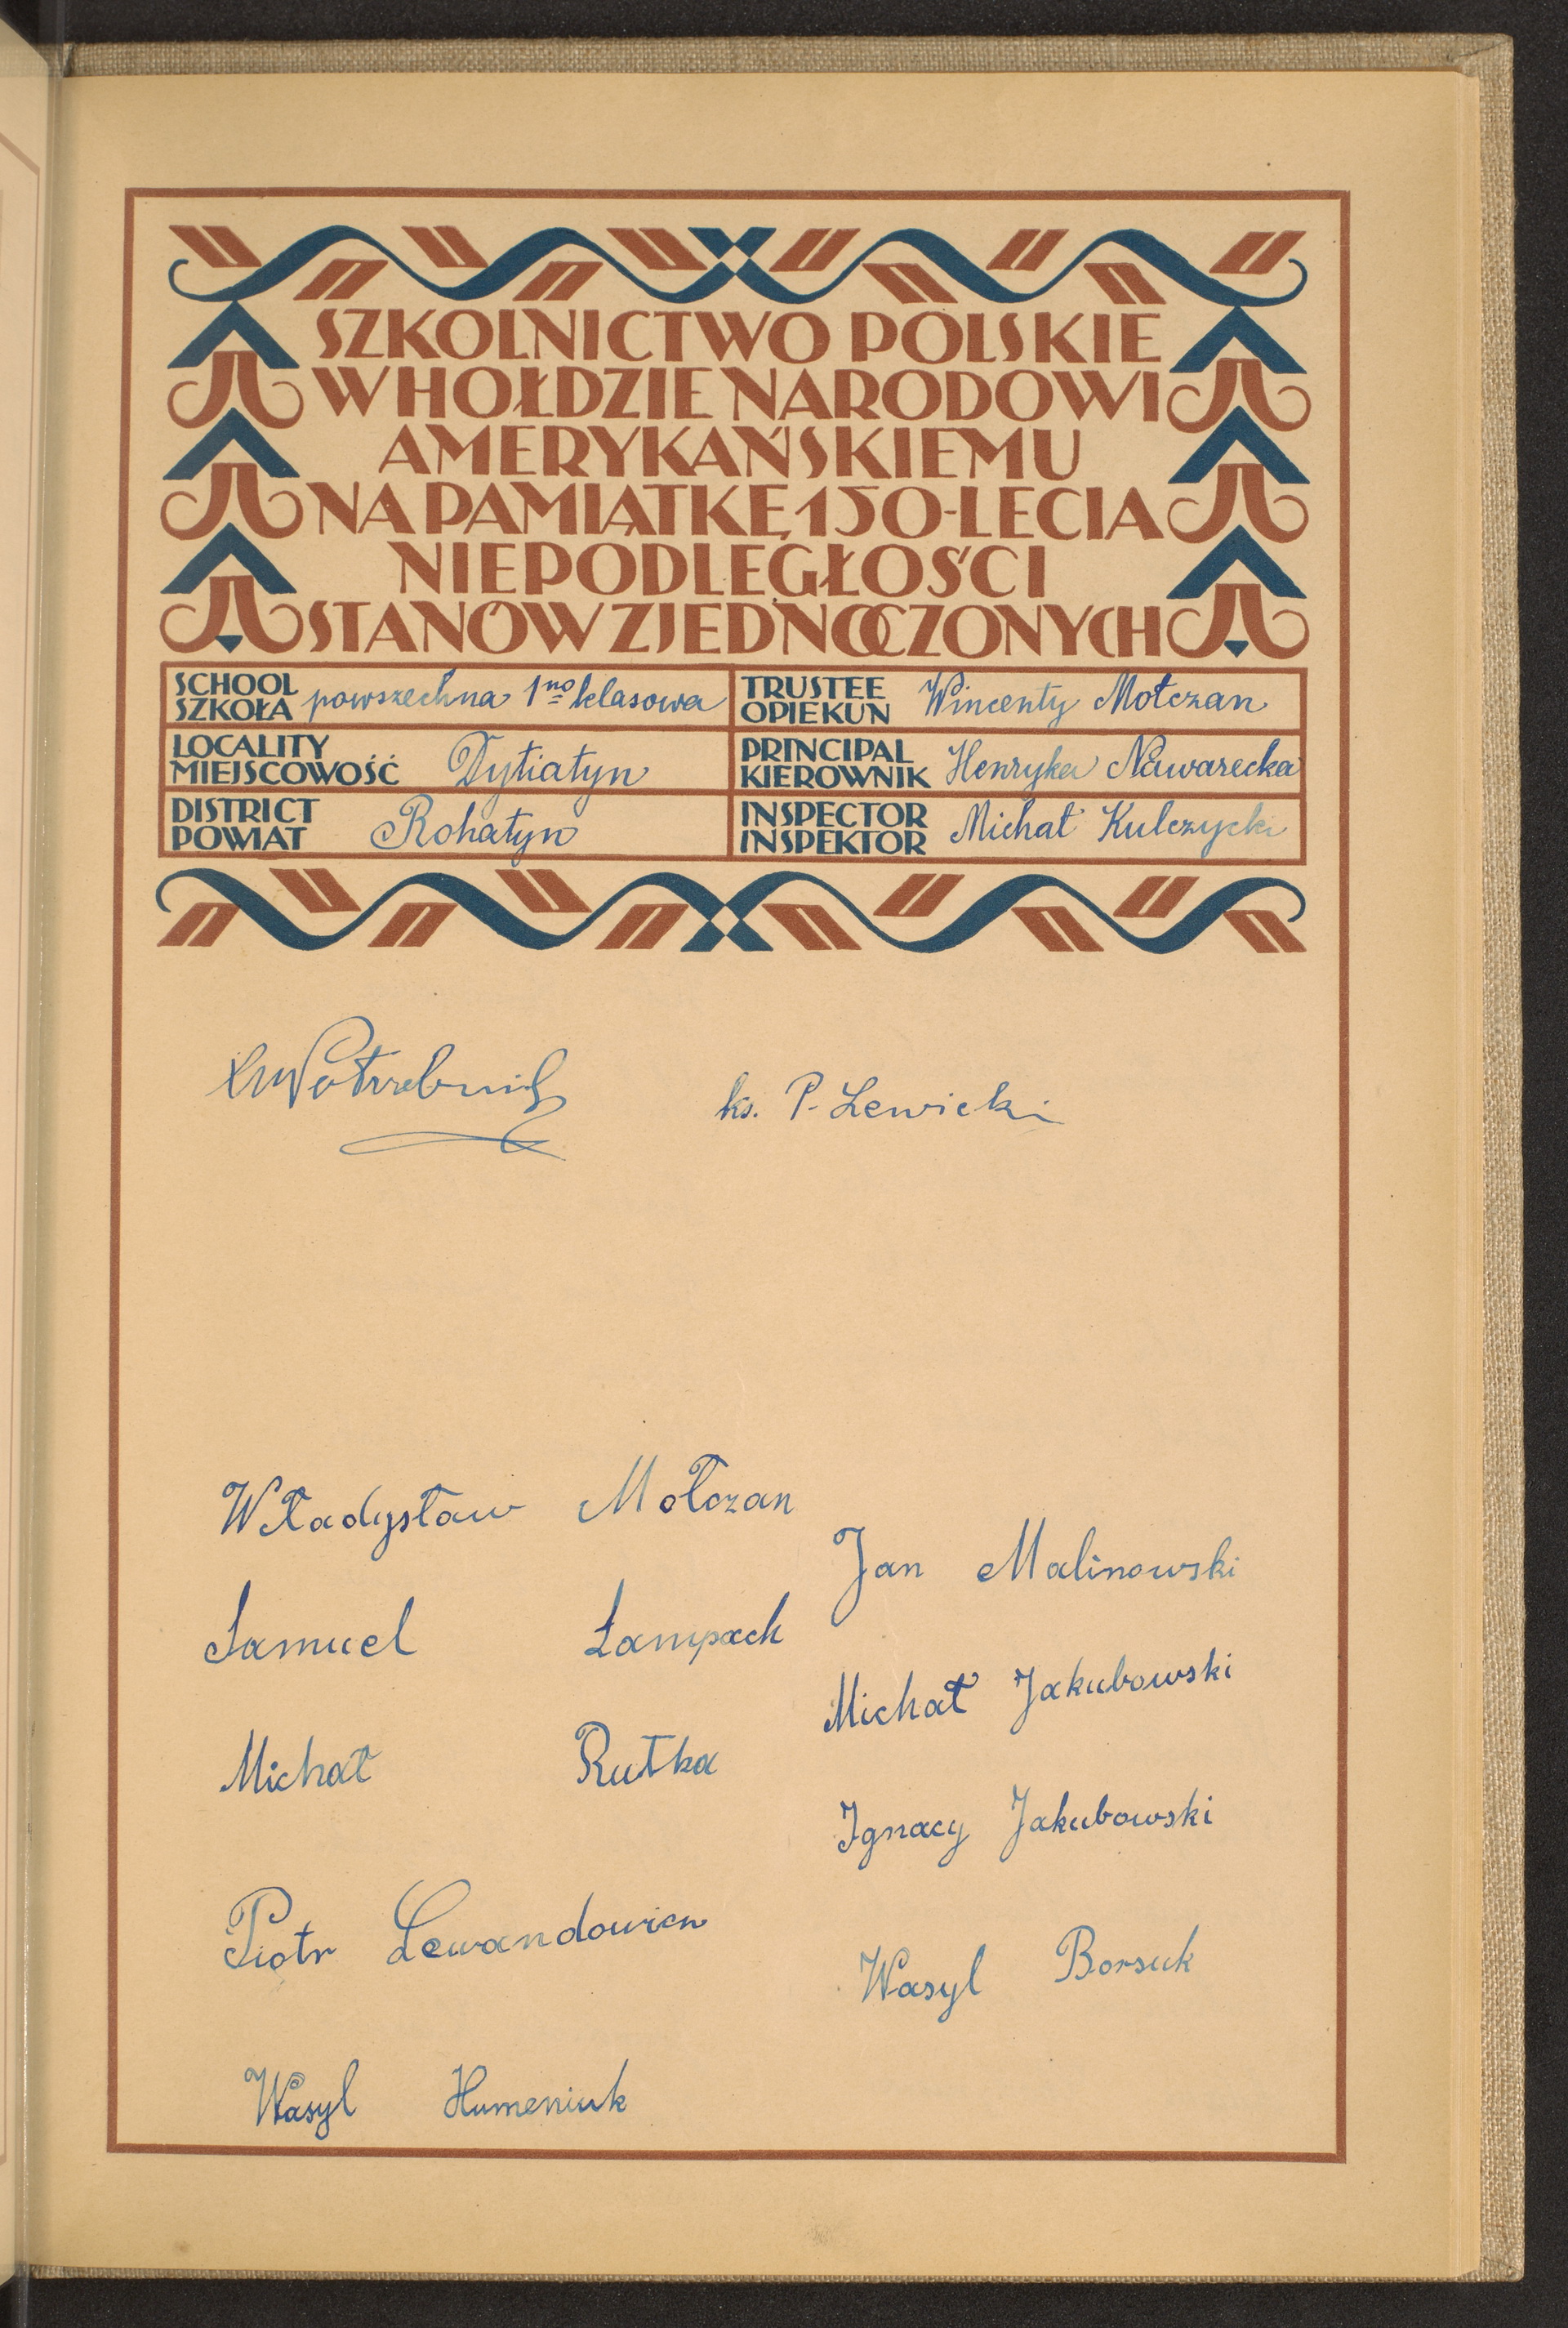 SZKOLNICTWO POLSKIE
W HOŁDZIE NARODOWI
AMERYKAŃSKIEMU
NA PAMIĄTKĘ 150-LECIA
NIEPODLEGŁOŚCI
STANÓW ZJEDNOCZONYCH
SCHOOL
SZKOŁA powszechna 1no klasowa
TRUSTEE
OPIEKUN Wincenty Mołczan
LOCALITY
MIEJSCOWOŚĆ Dytiatyn
PRINCIPAL
KIEROWNIK Henryka Nawarecka
DISTRICT
POWIAT Rohatyn
INSPECTOR
INSPEKTOR Michał Kulczycki
ks. P. Lewicki
Władysław Mołczan
Samuel Łampach
Michał Rutka
Piotr Lewandowicz
Wasyl Humeniuk
Jan Malinowski
Michał Jakubowski
Ignacy Jakubowski
Wasyl Borsuk